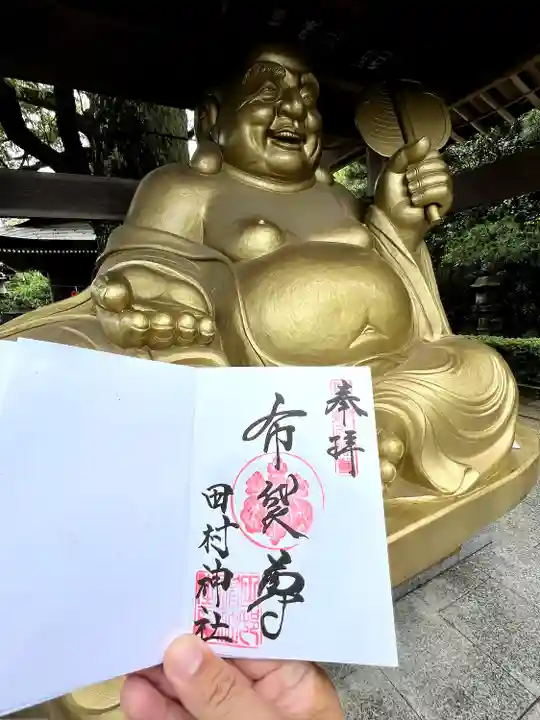 奉拝
布袋尊
田村神社